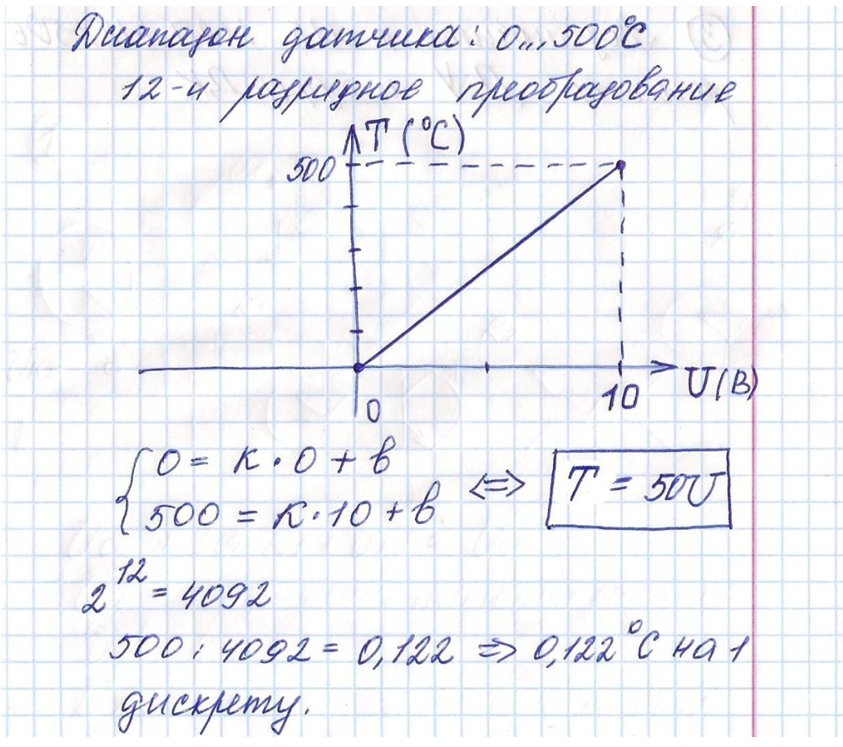 Диапазон датчика: 0...500°C
12-и разрядное преобразование
T (°C)
500
0
10
U(В)
0 = K·0 + b
500 = K·10 + b
<=> T = 50U
2^12 = 4092
500 : 4092 = 0,122 => 0,122°C на 1
дискрету.